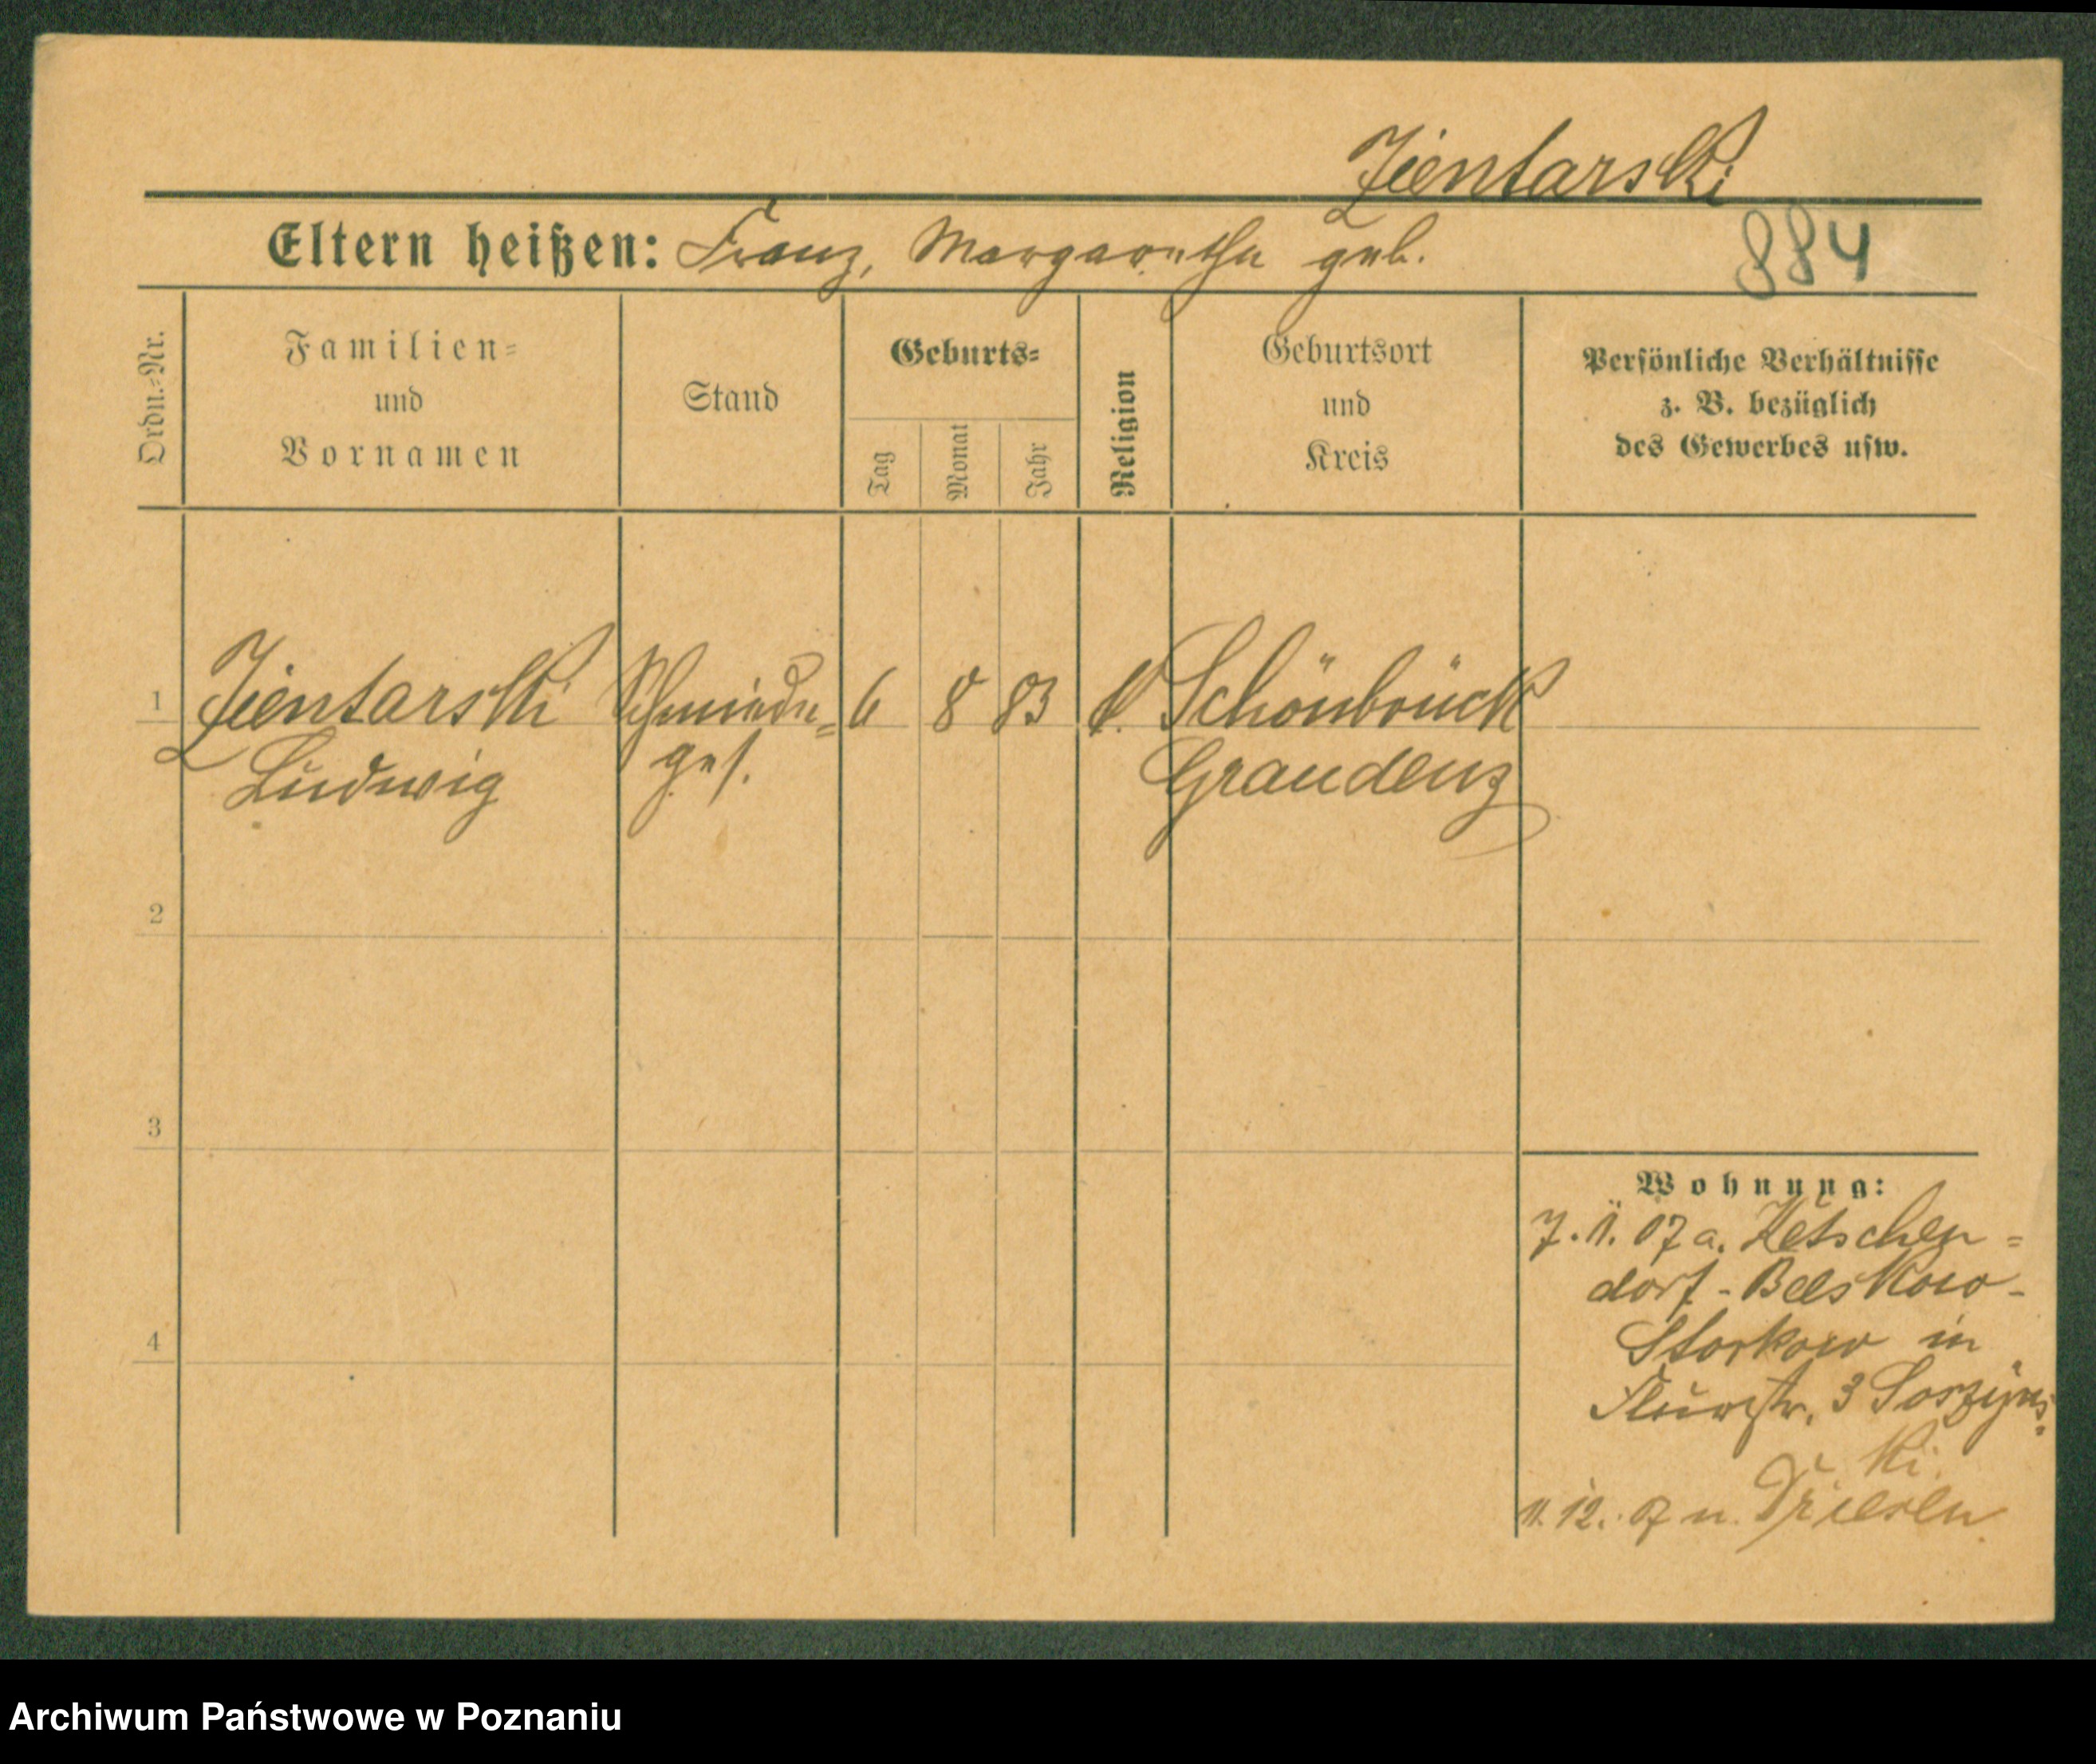 Zientarski
Eltern heißen: Franz, Margarethe geb.
884
Ordn.=Nr.
Familien=
und
Vornamen
Stand
Geburts=
Tag
Monat
Jahr
Religion
Geburtsort
und
Kreis
Persönliche Verhältnisse
z. B. bezüglich
des Gewerbes usw.
1 Zientarski Schmiede= 6 8 83 k. Schönbrück
Ludwig ges. Graudenz
2
3
4
Wohnung:
7. 11. 07 a. Ketschen=
dorf - Beeskow -
Storkow in
Flurstr. 3 Soszyns=
ki.
11. 12. 07 n. Driesen
Archiwum Państwowe w Poznaniu